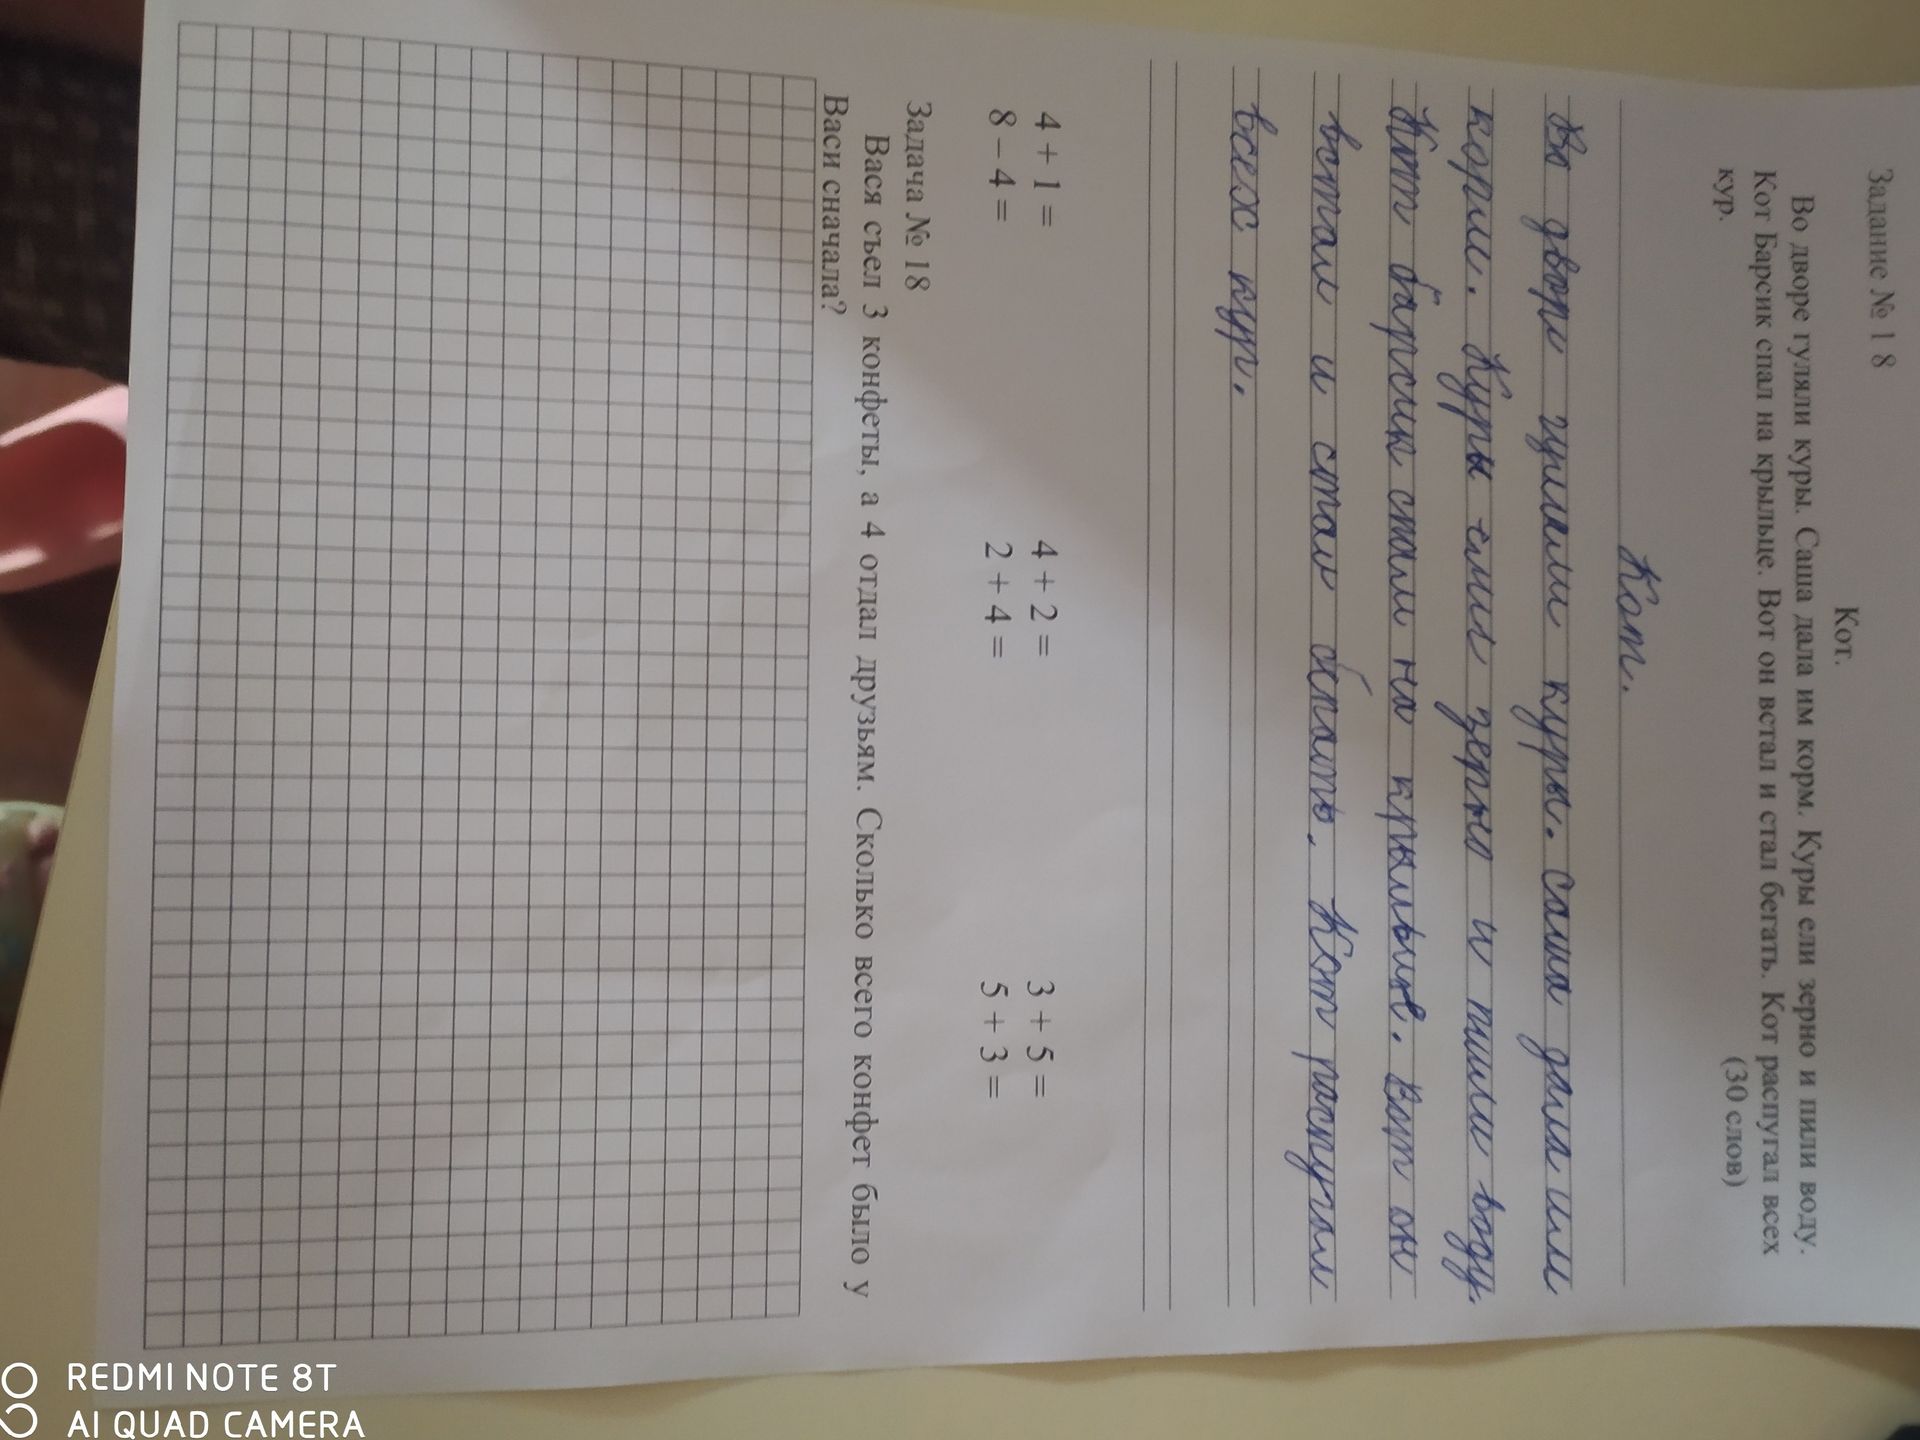 Задание № 1 8
Кот.
Во дворе гуляли куры. Саша дала им корм. Куры ели зерно и пили воду.
Кот Барсик спал на крыльце. Вот он встал и стал бегать. Кот распугал всех
кур.
(30 слов)
Кот.
Во дворе гуляли куры. Саша дала им
корм. Куры ели зерно и пили воду.
Кот барсик спали на крыльце. Вот он
встал и стал бгать. Кот распугал
всех кур.
4 + 1 = 4 + 2 = 3 + 5 =
8 – 4 = 2 + 4 = 5 + 3 =
Задача № 18
Вася съел 3 конфеты, а 4 отдал друзьям. Сколько всего конфет было у
Васи сначала?
REDMI NOTE 8T
AI QUAD CAMERA